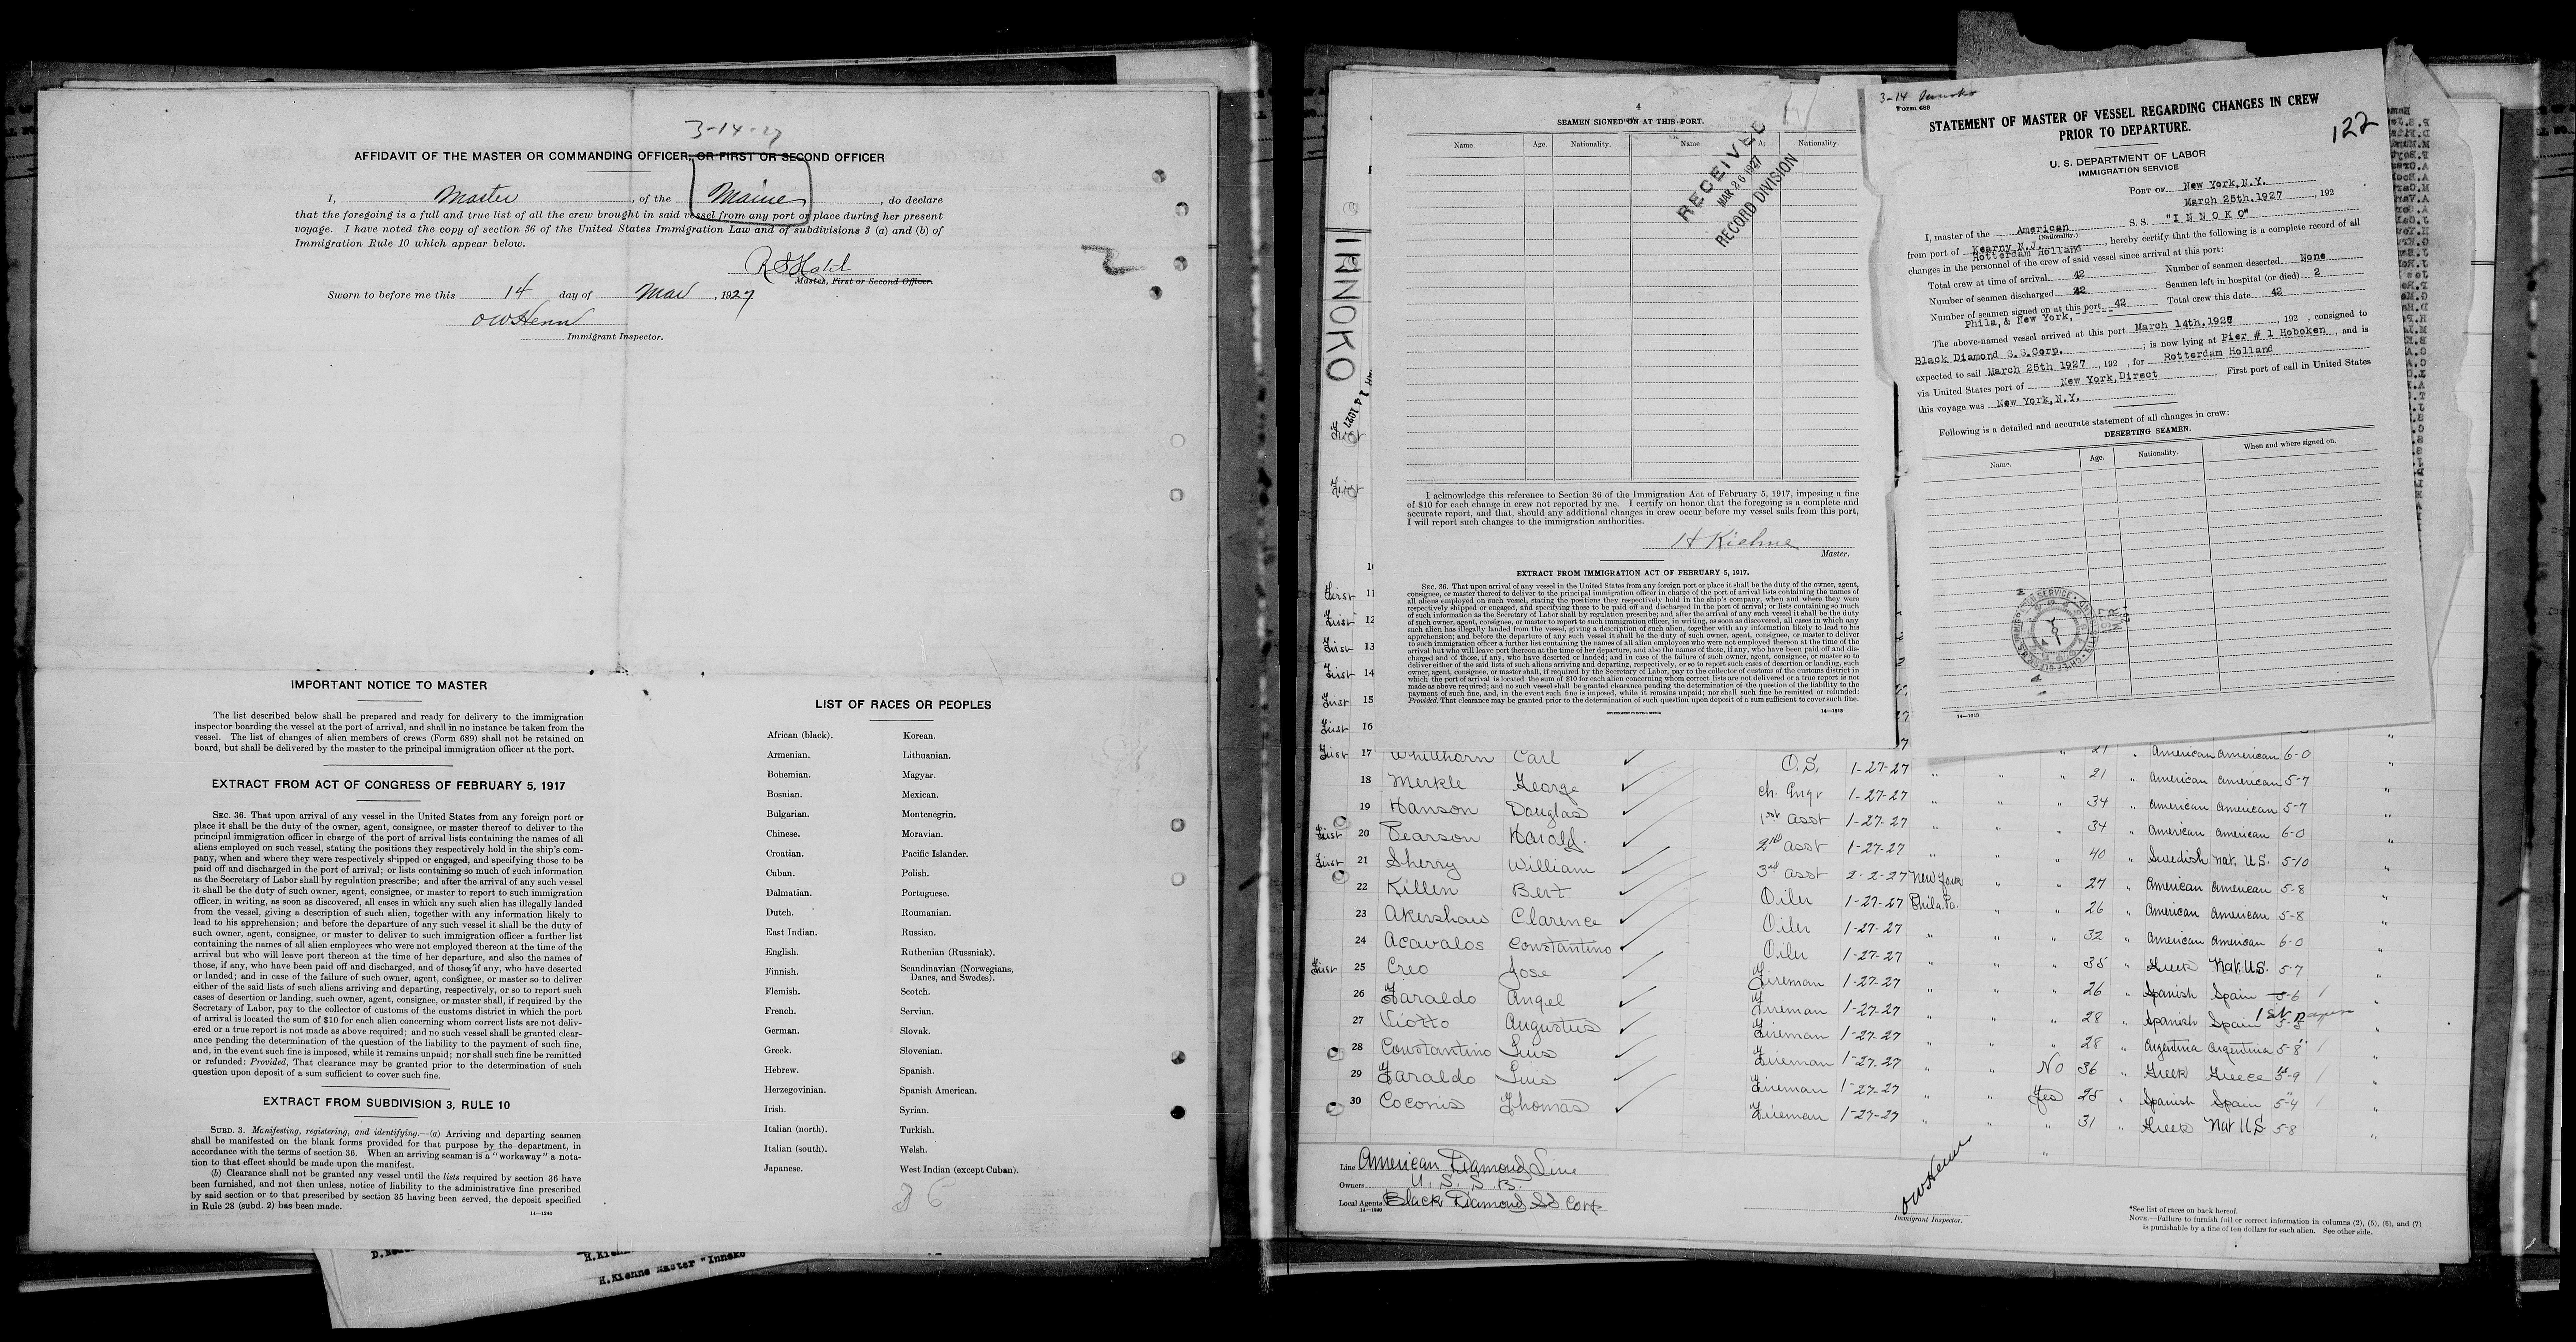 3-14-27
AFFIDAVIT OF THE MASTER OR COMMANDING OFFICER, OR FIRST OR SECOND OFFICER
I, Master, of the Maine, do declare
that the foregoing is a full and true list of all the crew brought in said vessel from any port or place during her present
voyage. I have noted the copy of section 36 of the United States Immigration Law and of subdivisions 3 (a) and (b) of
Immigration Rule 10 which appear below.
2
Master, First or Second Officer.
Sworn to before me this 14 day of Mar, 1927
OWHenn
Immigrant Inspector.
IMPORTANT NOTICE TO MASTER
The list described below shall be prepared and ready for delivery to the immigration
inspector boarding the vessel at the port of arrival, and shall in no instance be taken from the
vessel. The list of changes of alien members of crews (Form 689) shall not be retained on
board, but shall be delivered by the master to the principal immigration officer at the port.
EXTRACT FROM ACT OF CONGRESS OF FEBRUARY 5, 1917
SEC. 36. That upon arrival of any vessel in the United States from any foreign port or
place it shall be the duty of the owner, agent, consignee, or master thereof to deliver to the
principal immigration officer in charge of the port of arrival lists containing the names of all
aliens employed on such vessel, stating the positions they respectively hold in the ship's com-
pany, when and where they were respectively shipped or engaged, and specifying those to be
paid off and discharged in the port of arrival; or lists containing so much of such information
as the Secretary of Labor shall by regulation prescribe; and after the arrival of any such vessel
it shall be the duty of such owner, agent, consignee, or master to report to such immigration
officer, in writing, as soon as discovered, all cases in which any such alien has illegally landed
from the vessel, giving a description of such alien, together with any information likely to
lead to his apprehension; and before the departure of any such vessel it shall be the duty of
such owner, agent, consignee, or master to deliver to such immigration officer a further list
containing the names of all alien employees who were not employed thereon at the time of the
arrival but who will leave port thereon at the time of her departure, and also the names of
those, if any, who have been paid off and discharged, and of those, if any, who have deserted
or landed; and in case of the failure of such owner, agent, consignee, or master so to deliver
either of the said lists of such aliens arriving and departing, respectively, or so to report such
cases of desertion or landing, such owner, agent, consignee, or master, shall, if required by the
Secretary of Labor, pay to the collector of customs of the customs district in which the port
of arrival is located the sum of $10 for each alien concerning whom correct lists are not deliv-
ered or a true report is not made as above required; and no such vessel shall be granted clear-
ance pending the determination of the question of the liability to the payment of such fine,
and, in the event such fine is imposed, while it remains unpaid; nor shall such fine be remitted
or refunded: Provided, That clearance may be granted prior to the determination of such
question upon deposit of a sum sufficient to cover such fine.
EXTRACT FROM SUBDIVISION 3, RULE 10
SUBD. 3. Manifesting, registering, and identifying.—(a) Arriving and departing seamen
shall be manifested on the blank forms provided for that purpose by the department, in
accordance with the terms of section 36. When an arriving seaman is a "workaway" a nota-
tion to that effect should be made upon the manifest.
(b) Clearance shall not be granted any vessel until the lists required by section 36 have
been furnished, and not then unless, notice of liability to the administrative fine prescribed
by said section or to that prescribed by section 35 having been served, the deposit specified
in Rule 28 (subd. 2) has been made.
14—1240
LIST OF RACES OR PEOPLES
African (black). Korean.
Armenian. Lithuanian.
Bohemian. Magyar.
Bosnian. Mexican.
Bulgarian. Montenegrin.
Chinese. Moravian.
Croatian. Pacific Islander.
Cuban. Polish.
Dalmatian. Portuguese.
Dutch. Roumanian.
East Indian. Russian.
English. Ruthenian (Russniak).
Finnish. Scandinavian (Norwegians,
Danes, and Swedes).
Flemish. Scotch.
French. Servian.
German. Slovak.
Greek. Slovenian.
Hebrew. Spanish.
Herzegovinian. Spanish American.
Irish. Syrian.
Italian (north). Turkish.
Italian (south). Welsh.
Japanese. West Indian (except Cuban).
36
H.Kienne Master "Innoko
4
SEAMEN SIGNED ON AT THIS PORT.
Name. Age. Nationality. Name Nationality.
RECEIVED
MAR 26 1927
RECORD DIVISION
I acknowledge this reference to Section 36 of the Immigration Act of February 5, 1917, imposing a fine
of $10 for each change in crew not reported by me. I certify on honor that the foregoing is a complete and
accurate report, and that, should any additional changes in crew occur before my vessel sails from this port,
I will report such changes to the immigration authorities.
H Kiehne
Master.
EXTRACT FROM IMMIGRATION ACT OF FEBRUARY 5, 1917.
SEC. 36. That upon arrival of any vessel in the United States from any foreign port or place it shall be the duty of the owner, agent,
consignee, or master thereof to deliver to the principal immigration officer in charge of the port of arrival lists containing the names of
all aliens employed on such vessel, stating the positions they respectively hold in the ship's company, when and where they were
respectively shipped or engaged, and specifying those to be paid off and discharged in the port of arrival; or lists containing so much
of such information as the Secretary of Labor shall by regulation prescribe; and after the arrival of any such vessel it shall be the duty
of such owner, agent, consignee, or master to report to such immigration officer, in writing, as soon as discovered, all cases in which any
such alien has illegally landed from the vessel, giving a description of such alien, together with any information likely to lead to his
apprehension; and before the departure of any such vessel it shall be the duty of such owner, agent, consignee, or master to deliver
to such immigration officer a further list containing the names of all alien employees who were not employed thereon at the time of the
arrival but who will leave port thereon at the time of her departure, and also the names of those, if any, who have been paid off and dis-
charged and of those, if any, who have deserted or landed; and in case of the failure of such owner, agent, consignee, or master so to
deliver either of the said lists of such aliens arriving and departing, respectively, or so to report such cases of desertion or landing, such
owner, agent, consignee, or master shall, if required by the Secretary of Labor, pay to the collector of customs of the customs district in
which the port of arrival is located the sum of $10 for each alien concerning whom correct lists are not delivered or a true report is not
made as above required; and no such vessel shall be granted clearance pending the determination of the question of the liability to the
payment of such fine, and, in the event such fine is imposed, while it remains unpaid; nor shall such fine be remitted or refunded:
Provided, That clearance may be granted prior to the determination of such question upon deposit of a sum sufficient to cover such fine.
GOVERNMENT PRINTING OFFICE 14—1613
3-14 Innoko
Form 689
STATEMENT OF MASTER OF VESSEL REGARDING CHANGES IN CREW
PRIOR TO DEPARTURE.
122
U. S. DEPARTMENT OF LABOR
IMMIGRATION SERVICE
PORT OF New York, N.Y.
March 25th.1927, 192
I, master of the American S. S. "I N N O K O"
(Nationality.)
from port of Kearny N.J. Rotterdam Holland, hereby certify that the following is a complete record of all
changes in the personnel of the crew of said vessel since arrival at this port:
Total crew at time of arrival 42 Number of seamen deserted None
Number of seamen discharged 42 Seamen left in hospital (or died) 2
Number of seamen signed on at this port 42 Total crew this date 42
Phila, & New York,
The above-named vessel arrived at this port March 14th.192, 192 , consigned to
Black Diamond S.S.Corp. ; is now lying at Pier # 1 Hoboken, and is
expected to sail March 25th 1927, 192 , for Rotterdam Holland
via United States port of New York, Direct First port of call in United States
this voyage was New York, N.Y.
Following is a detailed and accurate statement of all changes in crew:
DESERTING SEAMEN.
Name. Age. Nationality. When and where signed on.
14—1613
INNOKO
First
First
First 11
First 12
First 13
First 14
First 15
First 16
First 17 Whitthorn Carl O.S. 1-27-27 " " " 21 " American American 6-0 "
18 Merkle George Ch. Engr 1-27-27 " " " 21 " American American 5-7 "
19 Hanson Douglas 1st asst 1-27-27 " " " 34 " American American 5-7 "
First 20 Pearson Harold. 2nd asst 1-27-27 " " " 34 " American American 6-0 "
First 21 Sherry William 3rd asst 2-2-27 New York " " 40 " Swedish nat. U.S. 5-10 "
22 Killen Bert Oiler 1-27-27 Phila. Pa. " " 27 " American American 5-8 "
23 Akershaw Clarence Oiler 1-27-27 " " " 26 " American American 5-8 "
24 Acavalos Constantino Oiler 1-27-27 " " " 32 " American American 6-0 "
First 25 Creo Jose Fireman 1-27-27 " " " 35 " Greek Nat. U.S. 5-7 "
26 Faraldo Angel Fireman 1-27-27 " " " 26 " Spanish Spain 5-6 "
27 Viotto Augustus Fireman 1-27-27 " " " 28 " Spanish Spain "
28 Constantino Luis Fireman 1-27-27 " " " 28 " Argentina Argentina 5-8 "
29 Faraldo Luis Fireman 1-27-27 " " No 36 " Greek Greece 5-9 "
30 Coconis Thomas Fireman 1-27-27 " " Yes 25 " Spanish Spain 5-4 "
" " " 31 " Greek Nat U.S 5-8 "
Line American Diamond Line
Owners U. S. S. B.
Local Agents Black Diamond SS Corp
14—1240
OWHenn
Immigrant Inspector.
*See list of races on back hereof.
NOTE.—Failure to furnish full or correct information in columns (2), (5), (6), and (7)
is punishable by a fine of ten dollars for each alien. See other side.